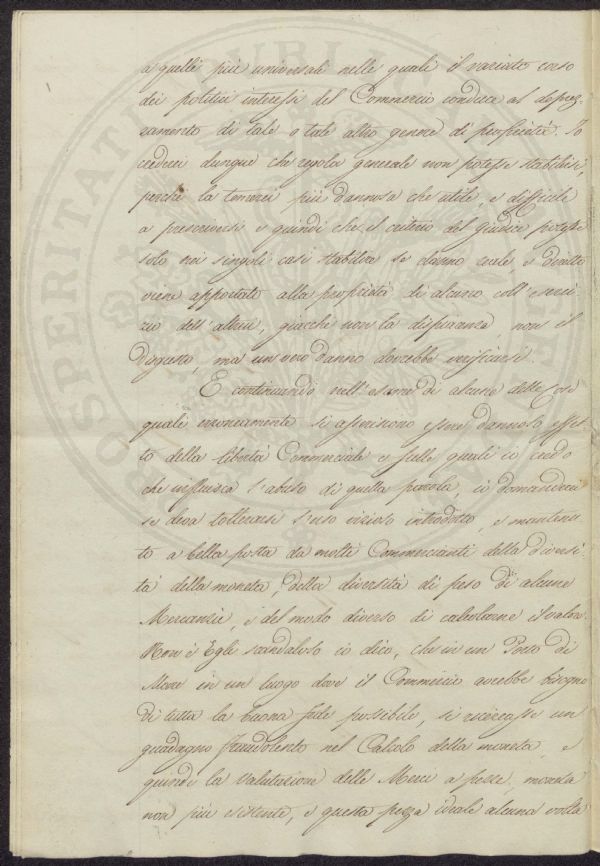 a quelle più universali nelle quali il variato corso
dei politici interessi del Commercio conduce al deprez-
zamento di tale o tale altro genere di proprietà. Io
crederei dunque che regola generale non potesse stabilirsi,
perchè la temerei più dannosa che utile, e difficile
a prescriversi e quindi che il criterio del giudice potesse
solo nei singoli casi stabilire se danno reale, e diretto
viene apportato alla proprietà di alcuno coll'eserci-
zio dell'altrui, giacchè non la disparanza, non il
disgusto, ma un vero danno dovrebbe verificarsi.
E continuando nell'esame di alcune delle Cose
quali erroneamente si asseriscono essere dannoso effet-
to della libertà Commerciale e sulle quali io credo
che influisca l'abuso di quella parola, io domanderei
se deva tollerarsi l'uso vizioso introdotto, e mantenu-
to a bella posta da molti Commercianti della diversi-
tà della moneta, della diversità di peso di alcune
Mercanzie, e del modo diverso di calcolarne il valore.
Non è Egli scandaloso io dico, che in un Porto di
Mare in un luogo dove il Commercio avrebbe bisogno
di tutta la buona fede possibile, si ricercasse un
guadagno fraudolento nel Calcolo della moneta, e
quindi la valutazione delle Merci a pezze, moneta
non più esistente, e questa pezza ideale alcuna volta
PROSPERITATI PUBLICAE